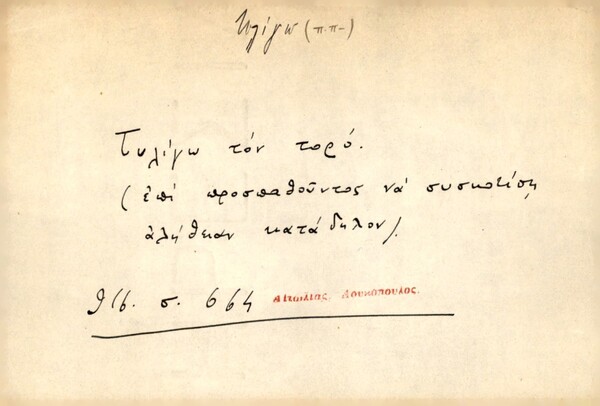 τυλίγω (π.π-)
Τυλίγω τόν τορό.
(ἐπί προσπαθοῦντος νά συσκοτίσῃ
ἀλήθειαν κατάδηλον).
σ. 664 Αἰτωλίας, Λουκόπουλος.